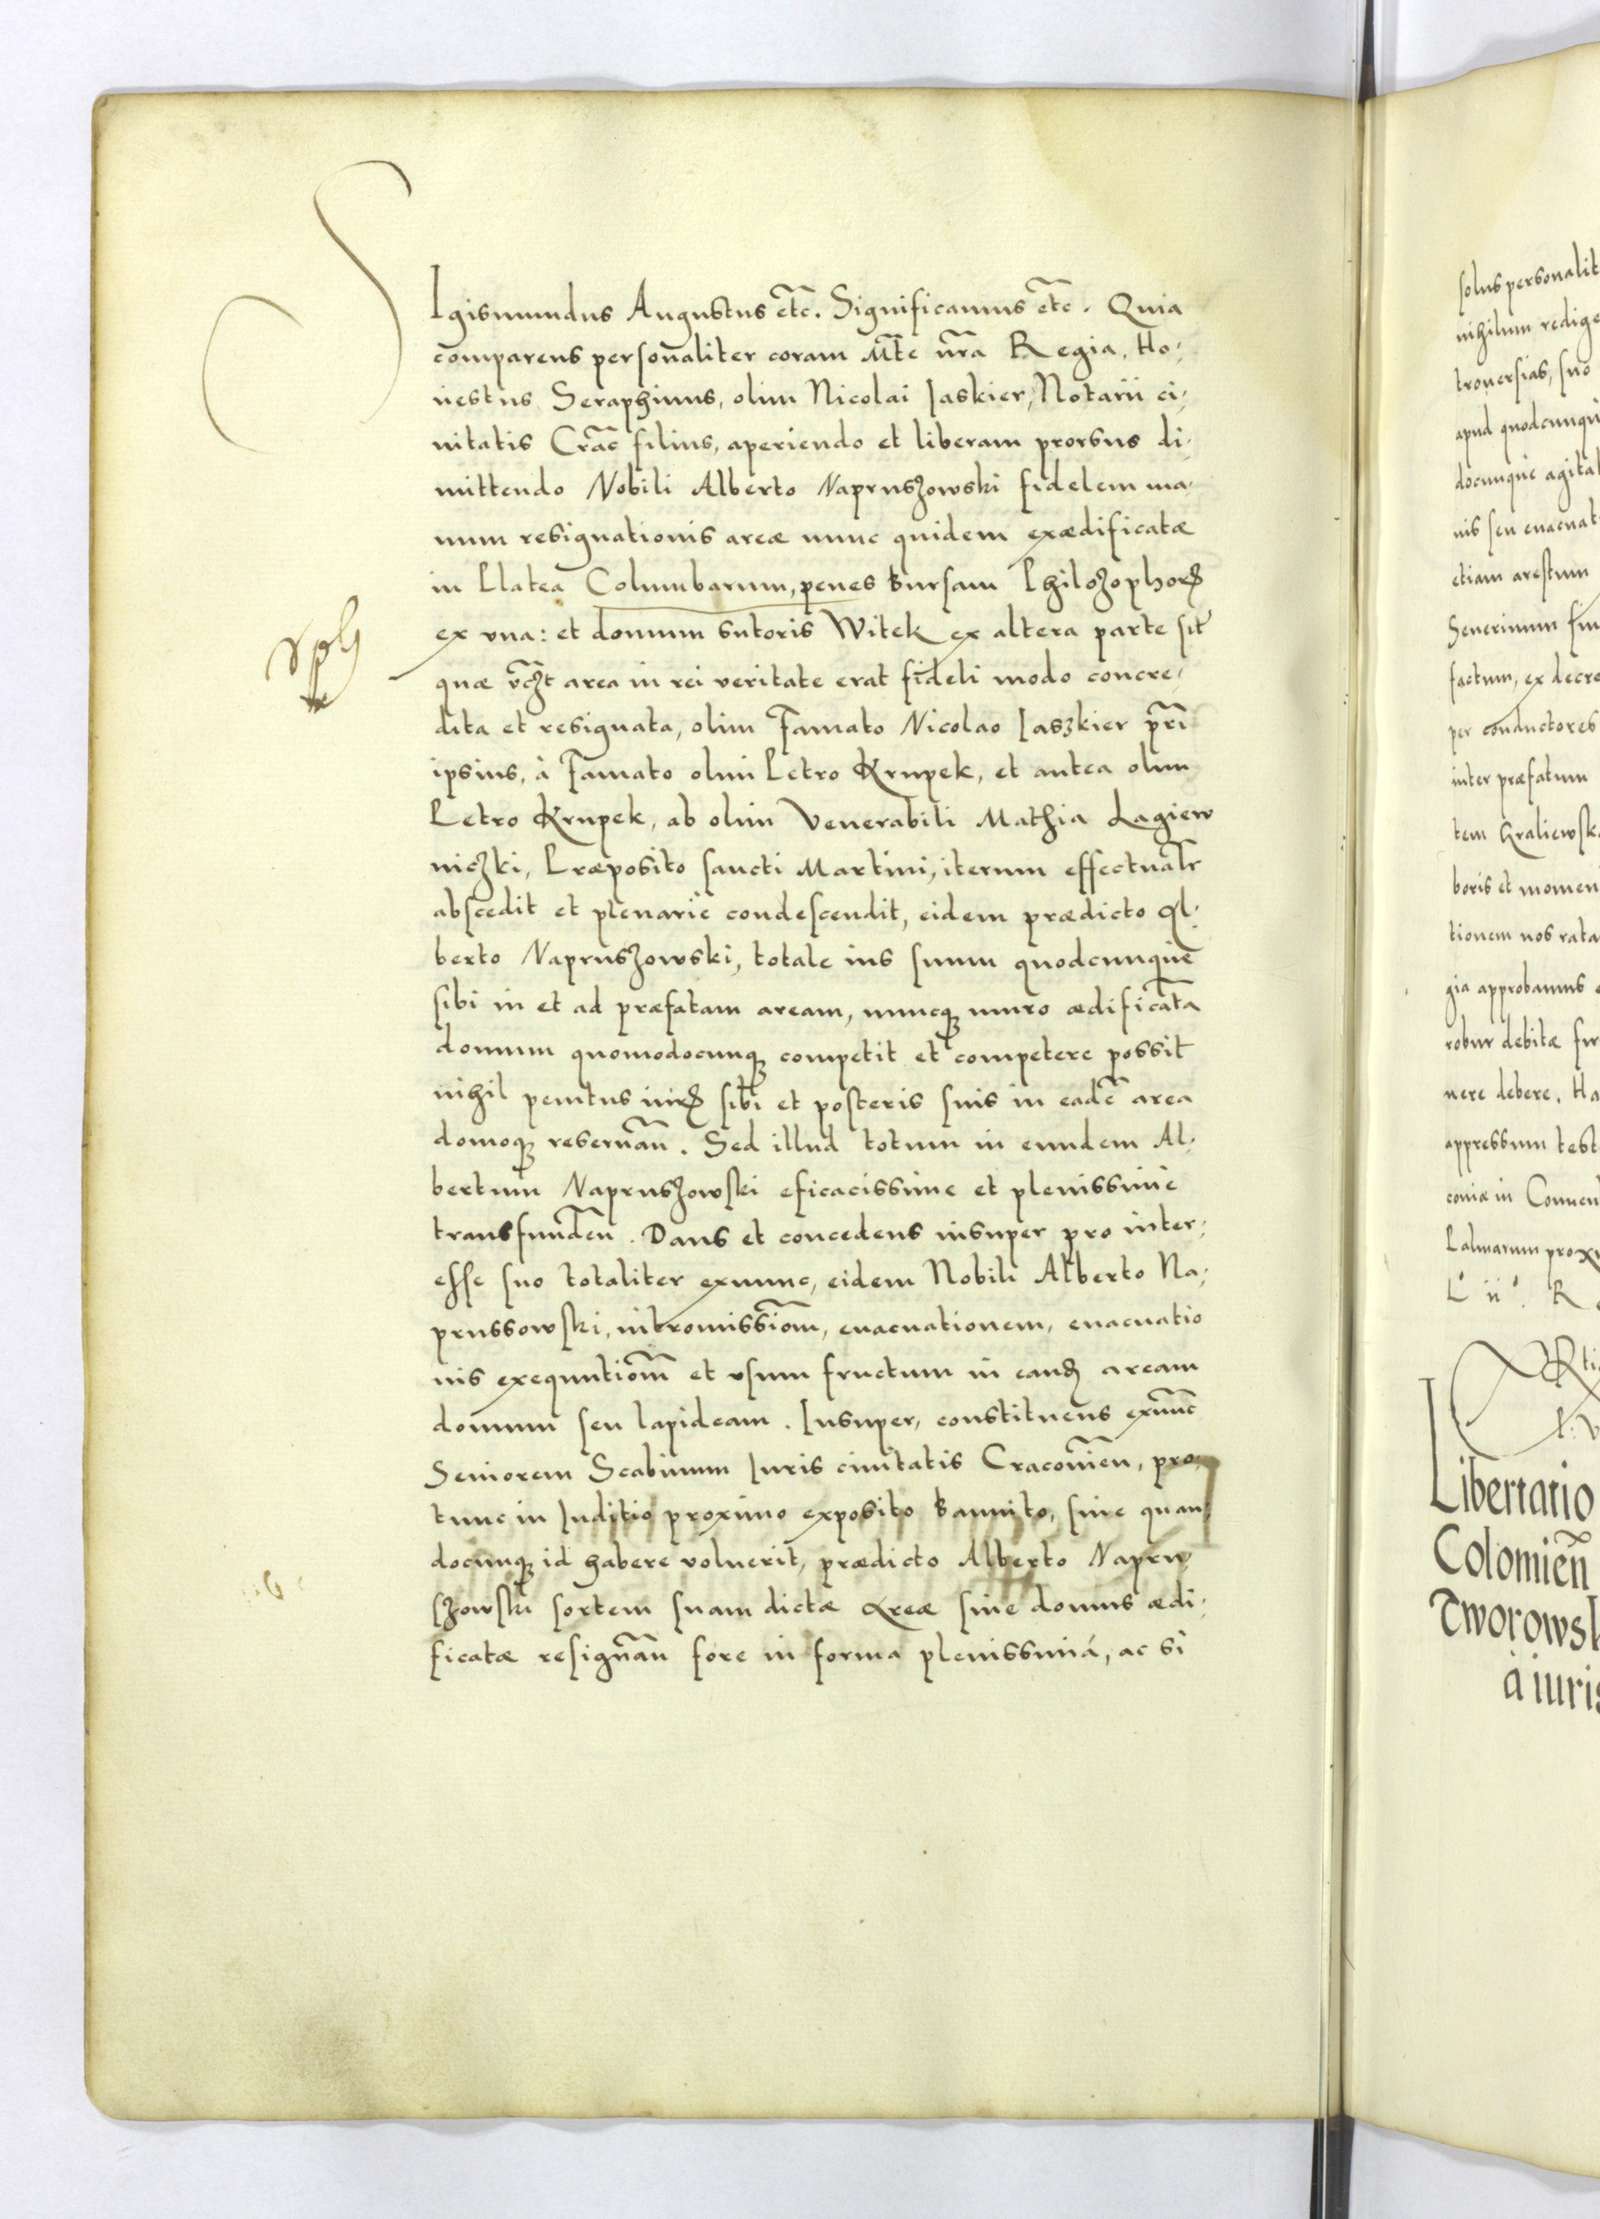 SIgismundus Augustus etc̃. Significamus etc̃. Quia
comparens personaliter coram Mte nr̃a Regia, Ho,
nestus Seraphinus, olim Nicolai Iaskier, Notarii ci,
uitatis Crac̃ filius, aperiendo et liberam prorsus di,
mittendo Nobili Alberto Napruszowski fidelem ma,
num resignationis areæ nunc quidem exædificatæ
in Platea Columbarum, penes Bursam Philozophorꝝ
ex vna: et domum sutoris Witek ex altera parte sit̃
quæ vcz̃t area in rei veritate erat fideli modo concre,
dita et resignata, olim Famato Nicolao Iaszkier pr̃i
ipsius, à Famato olim Petro Krupek, et antea olim
Petro Krupek, ab olim Venerabili Mathia Lagiew
niczki, Præposito sancti Martini, iterum effectualr̃
abscedit et plenariè condescendit, eidem prædicto Al,
berto Napruszowski, totale ius suum quodcunque
sibi in et ad præfatam aream, nuncq; muro ædificata
domum quomodocunq; competit et competere possit
nihil penitus iurꝝ sibi et posteris suis in eadẽ area
domoq; reseruãn. Sed illud totum in eundem Al,
bertum Napruszowski eficacissime et plenissimè
transfundẽn. Dans et concedens insuper pro inter,
esse suo totaliter exnunc, eidem Nobili Alberto Na,
prussowski, intromissiom̃, euacuationem, euacuatio
nis exequutiom̃ et vsum fructum in eandꝫ aream
domum seu lapideam. Insuper, constituens exnunc
Seniorem Scabinum Iuris ciuitatis Cracouiẽn, pro,
tunc in Iuditio proximo exposito bannito, siue quan,
docunq; id habere voluerit, prædicto Alberto Napru,
szowski sortem suam dictæ Areæ siue domus ædi,
ficatæ resignãn fore in forma plenissimá, ac si
solus personalit
nihilum redige
trouersias, suo
apud quodcunqu
docunque agitat
nis seu euacuat
etiam arestum
Seuerinum fu
factum, ex decre
per conductores
inter præfatum
tem Kraliewsk
boris et momen
tionem nos rata
gia approbamus
robur debitæ fir
nere debere. Ha
appressum test
coniæ in Conuen
Palmarum proxi
Libertatio
Colomien̄
Tworowsk
à iuris